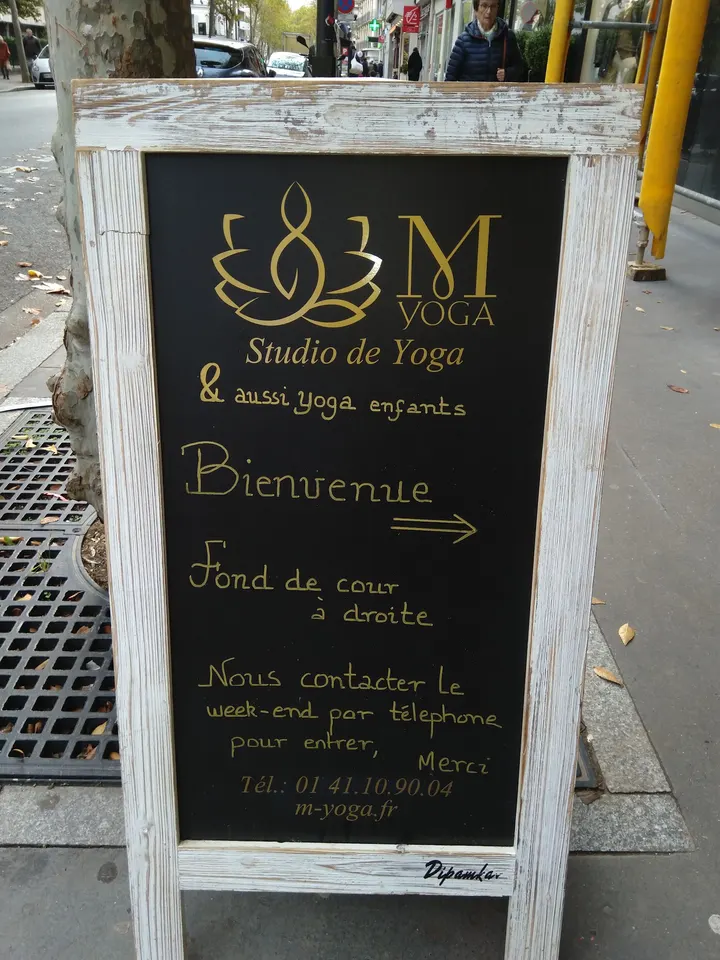 M
YOGA
Studio de Yoga
& aussi yoga enfants
Bienvenue
Fond de cour
à droite
Nous contacter le
week-end par téléphone
pour entrer,
Merci
Tél.: 01 41.10.90.04
m-yoga.fr
Dipamkar